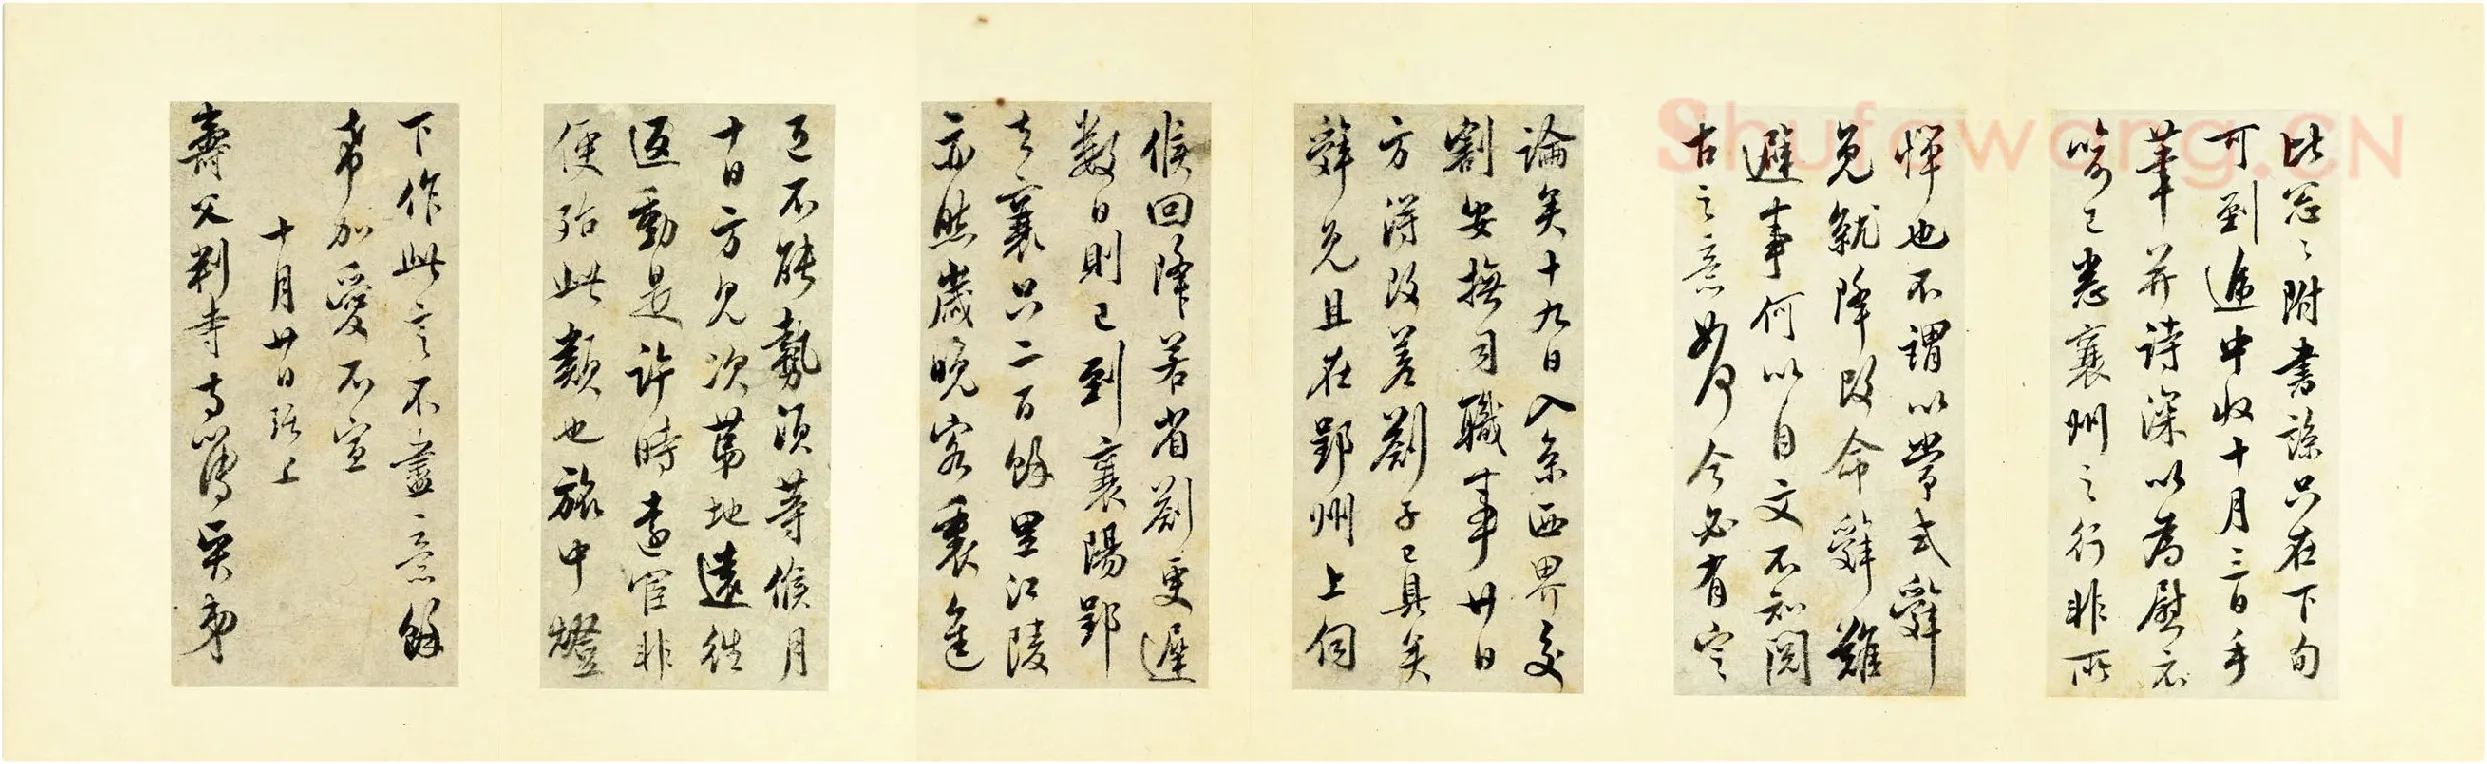 比忽忽附書諒只在下旬
可到遞中收十月三日手
筆并詩深以為慰示
喻已悉襄州之行非所
憚也不謂以常式辭
免就降改命辭難
避事何以自文不知閤
古之意如何今必有定
論矣十九日入京西界交
割安撫司職事廿日
方得改差劄子已具奏
辭免且在郢州上伺
候回降若省劄更遲
數日則已到襄陽郢
去襄只二百餘里江陵
亦然歲晚客裏進
退不能勢須等候月
十日方見次第地遠往
返動是許時遠宦非
便殆此類也旅中燈
下作此言不盡意餘
希加愛不宣
十月廿日 上
壽父判寺寺簿賢弟
Shufawang.CN